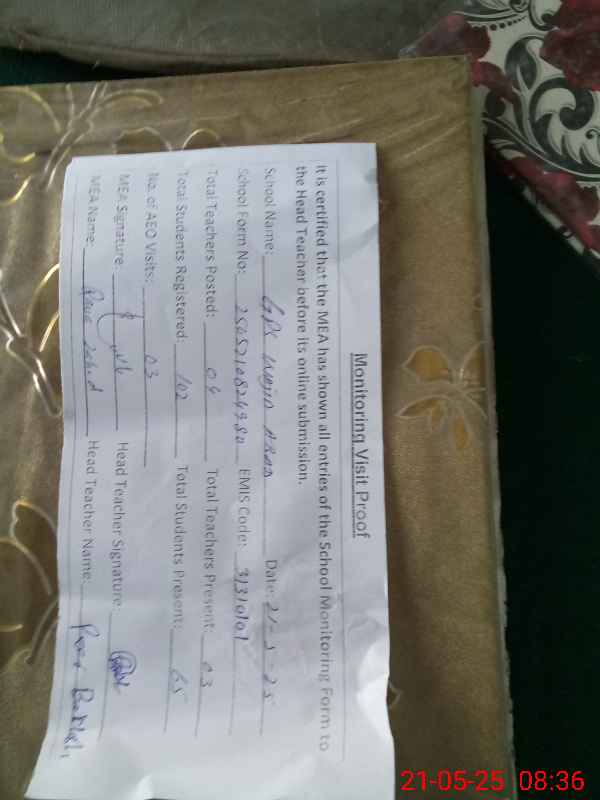 Monitoring Visit Proof
It is certified that the MEA has shown all entries of the School Monitoring Form to
the Head Teacher before its online submission.
School Name: GPS Date: 21-5-25
School Form No: EMIS Code:
Total Teachers Posted: 04 Total Teachers Present: 03
Total Students Registered: 102 Total Students Present: 65
No. of AEO Visits: 03
MEA Signature: Head Teacher Signature:
MEA Name: Head Teacher Name:
21-05-25 08:36